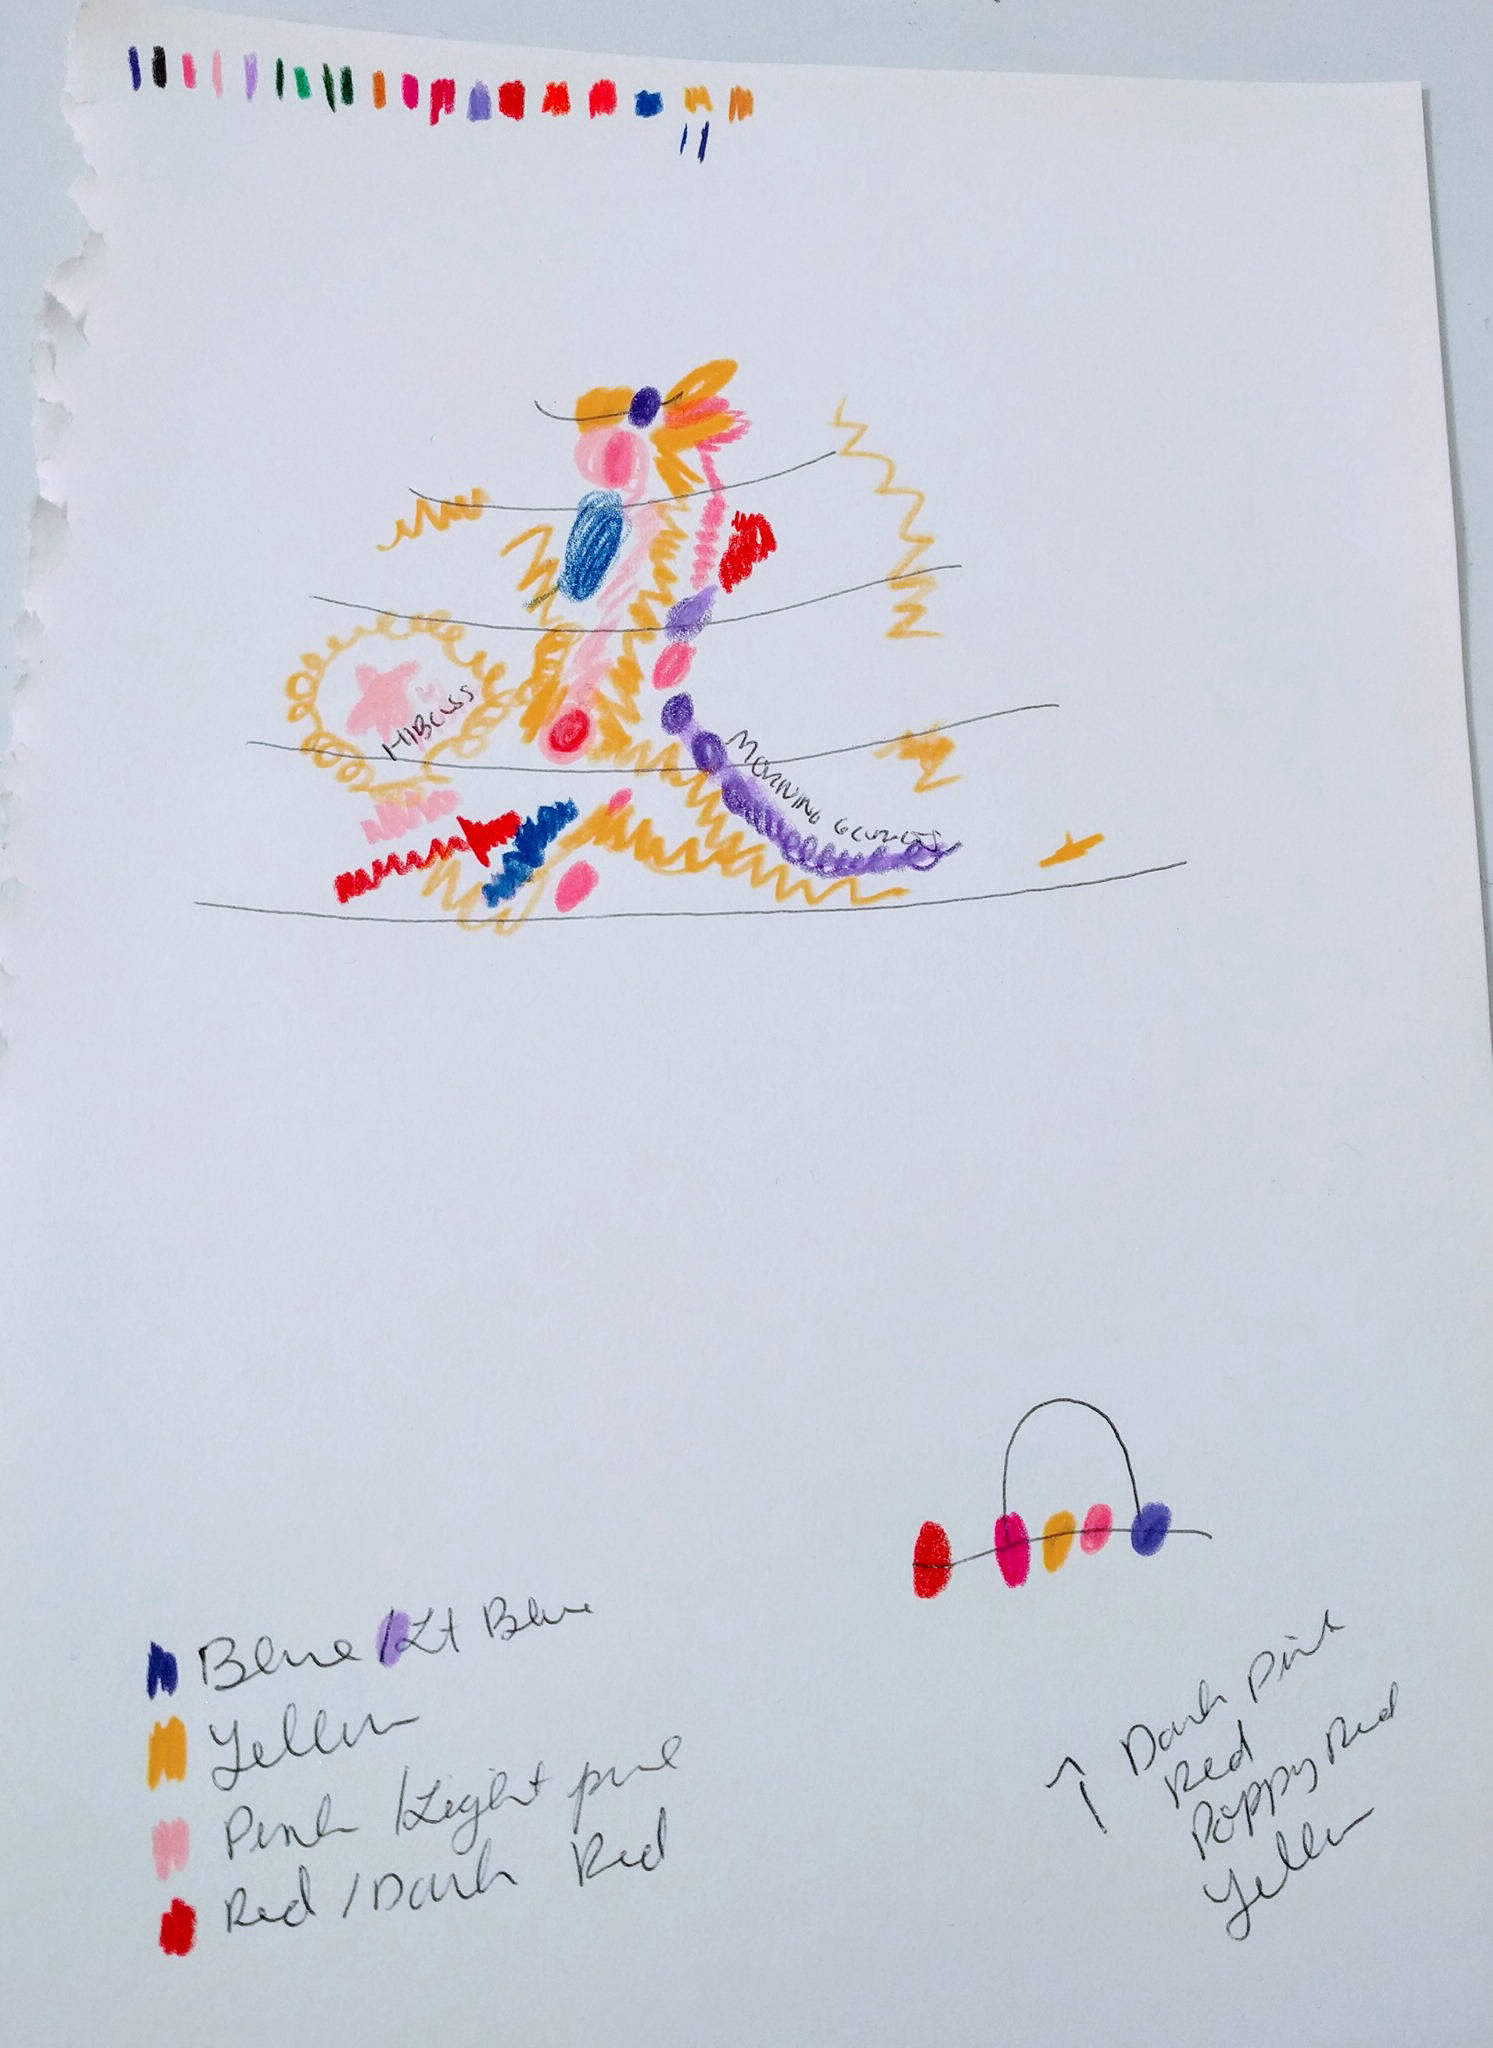 HIBCUSS
MORNING
Blue / Lt Blue
Yellow
Pink / Light pink
Red / Dark Red
Dark pink
Red
Poppy Red
Yellow